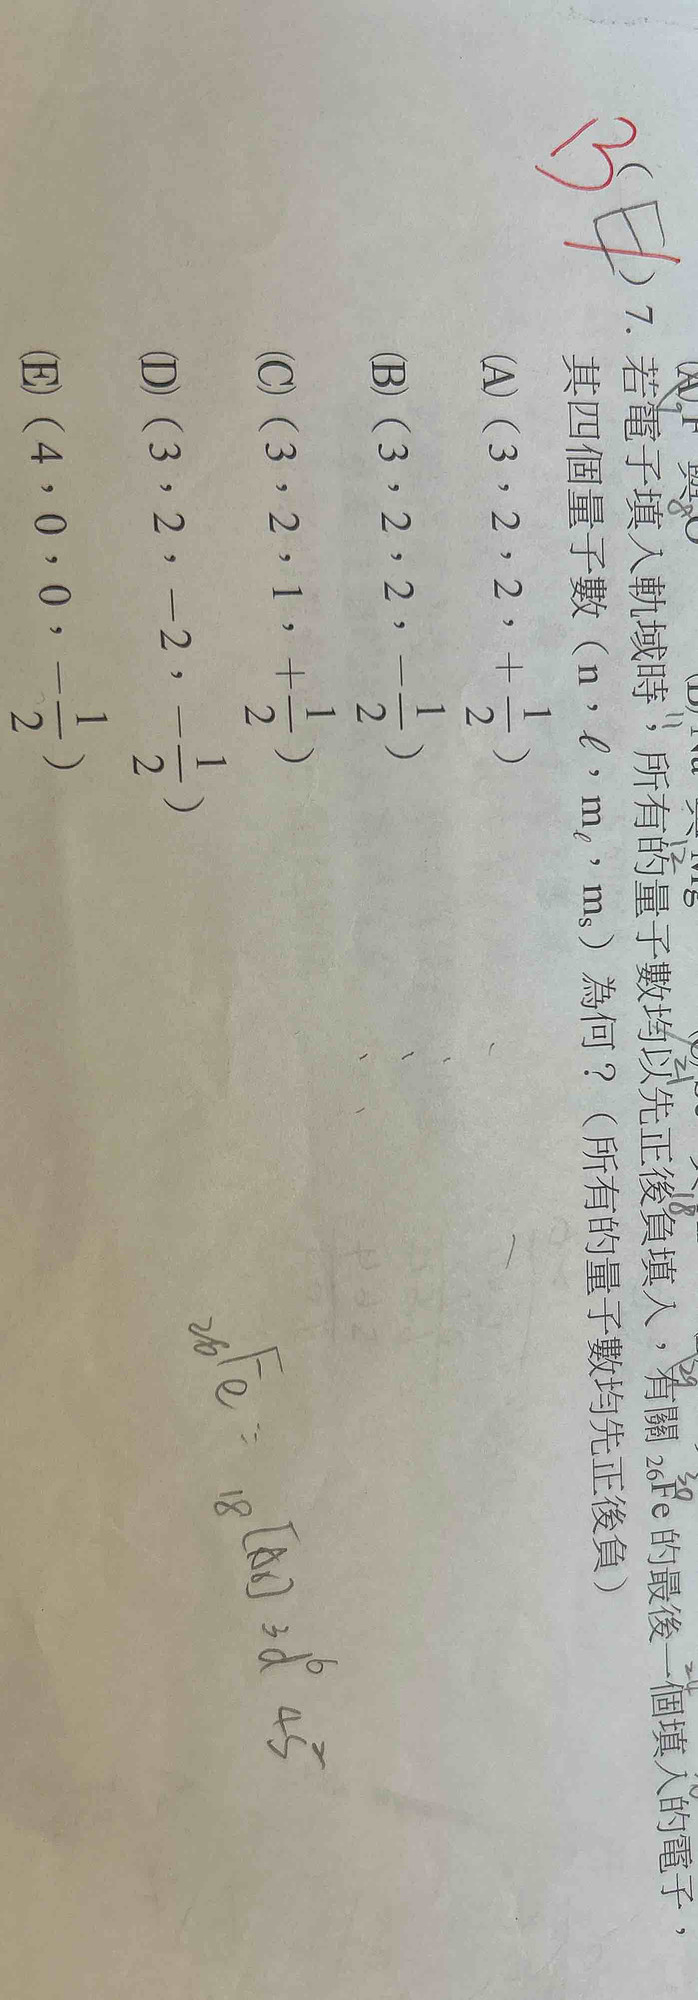 B
( E ) 7. 若電子填入軌域時，所有的量子數均以先正後負填入，有關 ₂₆Fe 的最後一個填入的電子，
其四個量子數（n，ℓ，mℓ，mₛ）為何？（所有的量子數均先正後負）
(A)（3，2，2，+1/2）
(B)（3，2，2，−1/2）
(C)（3，2，1，+1/2）
(D)（3，2，−2，−1/2）
(E)（4，0，0，−1/2）
₂₆Fe: ₁₈[Ar] 3d⁶ 4s²